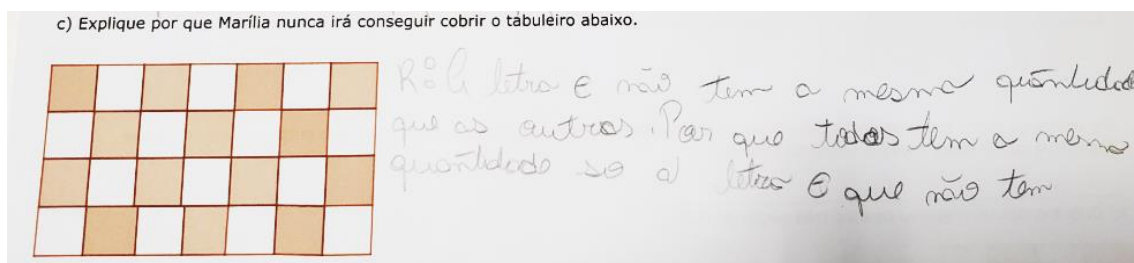 c) Explique por que Marília nunca irá conseguir cobrir o tabuleiro abaixo.
R: A letra E não tem a mesma quãntidade
que as outras. Por que todas tem a mesma
quãntidade so a letra E que não tem